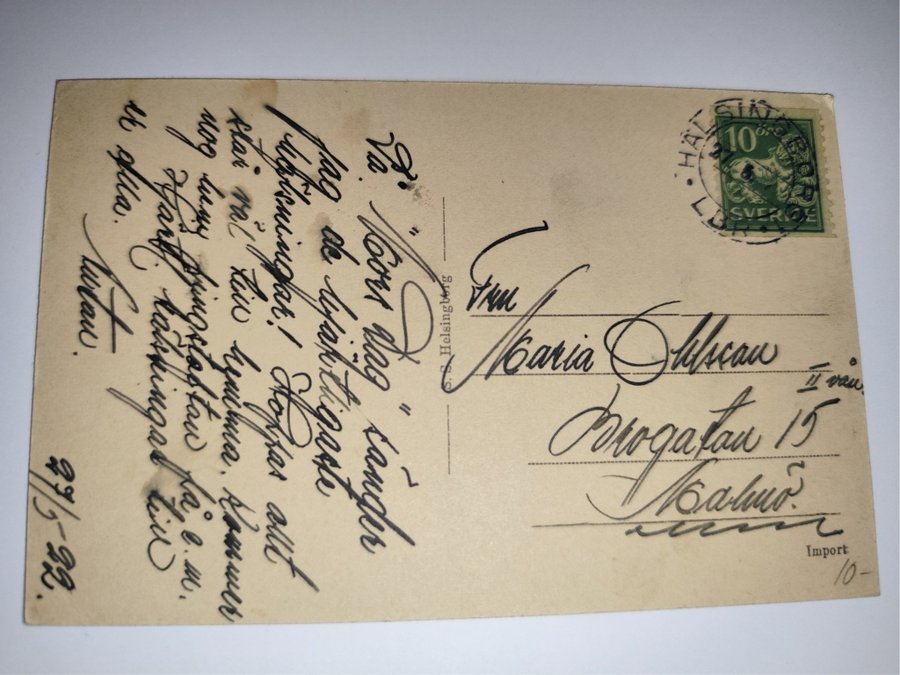 På "Mors dag" sänder
jag de hjärtligaste
lyckönskningar! Hoppas allt
står väl till hemma. Kommer
nog hem pingstafton på e.m.
Hjärtl. hälsningar till
er alla.
27/5-22.
S. S. Helsingborg
HÄLSINGBORG
27 5
LBR
10 ÖRE
SVERIGE
Fru
Maria Ohlsson
II vån.
Brogatan 15
Malmö.
Import
10-